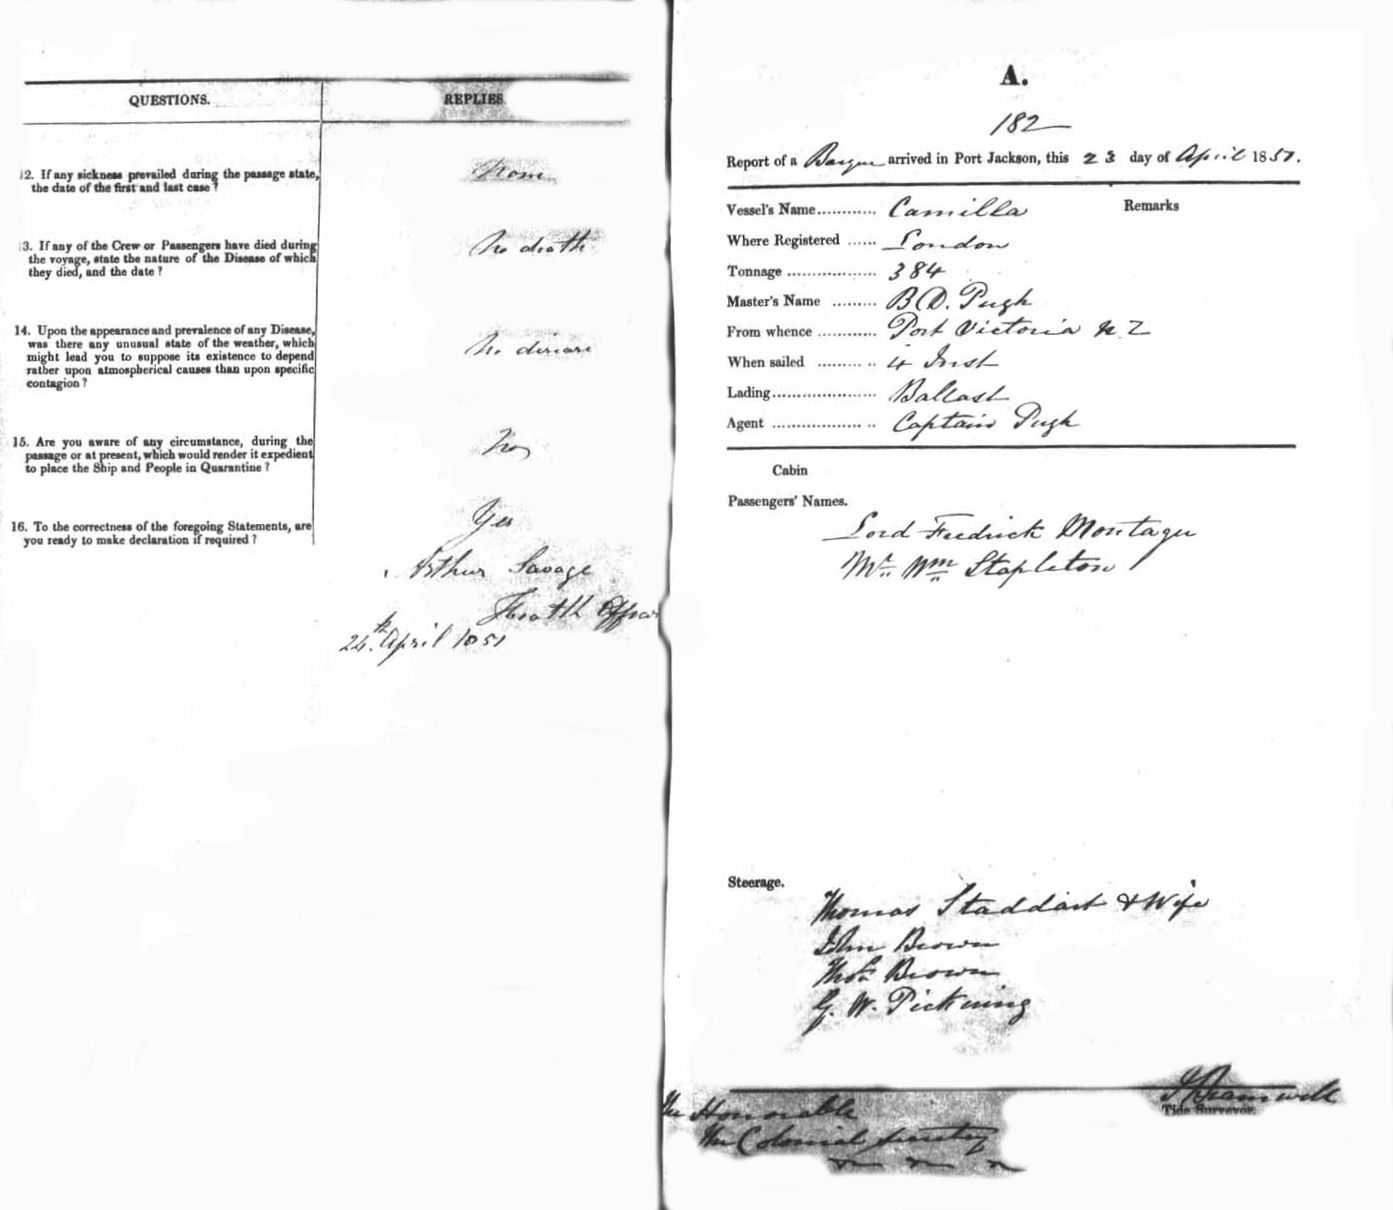 QUESTIONS.
REPLIES
12. If any sickness prevailed during the passage state,
the date of the first and last case ?
None
3. If any of the Crew or Passengers have died during
the voyage, state the nature of the Disease of which
they died, and the date ?
No death
14. Upon the appearance and prevalence of any Disease,
was there any unusual state of the weather, which
might lead you to suppose its existence to depend
rather upon atmospherical causes than upon specific
contagion ?
No disease
15. Are you aware of any circumstance, during the
passage or at present, which would render it expedient
to place the Ship and People in Quarantine ?
No
16. To the correctness of the foregoing Statements, are
you ready to make declaration if required ?
Yes
Arthur Savage
Health Officer
24th. April 1851
A.
182
Report of a Barque arrived in Port Jackson, this 23 day of April 1851.
Vessel's Name............ Camilla
Remarks
Where Registered ...... London
Tonnage .................. 384
Master's Name ......... B D. Pugh
From whence ............ Port Victoria N. Z
When sailed ......... .. 4 Inst
Lading..................... Ballast
Agent .................. .. Captain Pugh
Cabin
Passengers' Names.
Lord Fredrick Montagu
Mr. Wm Stapleton
Steerage.
Thomas Staddart & Wife
John Brown
Thos Brown
G. W. Pickning
The Honorable
The Colonial Secretary
Tide Surveyor.